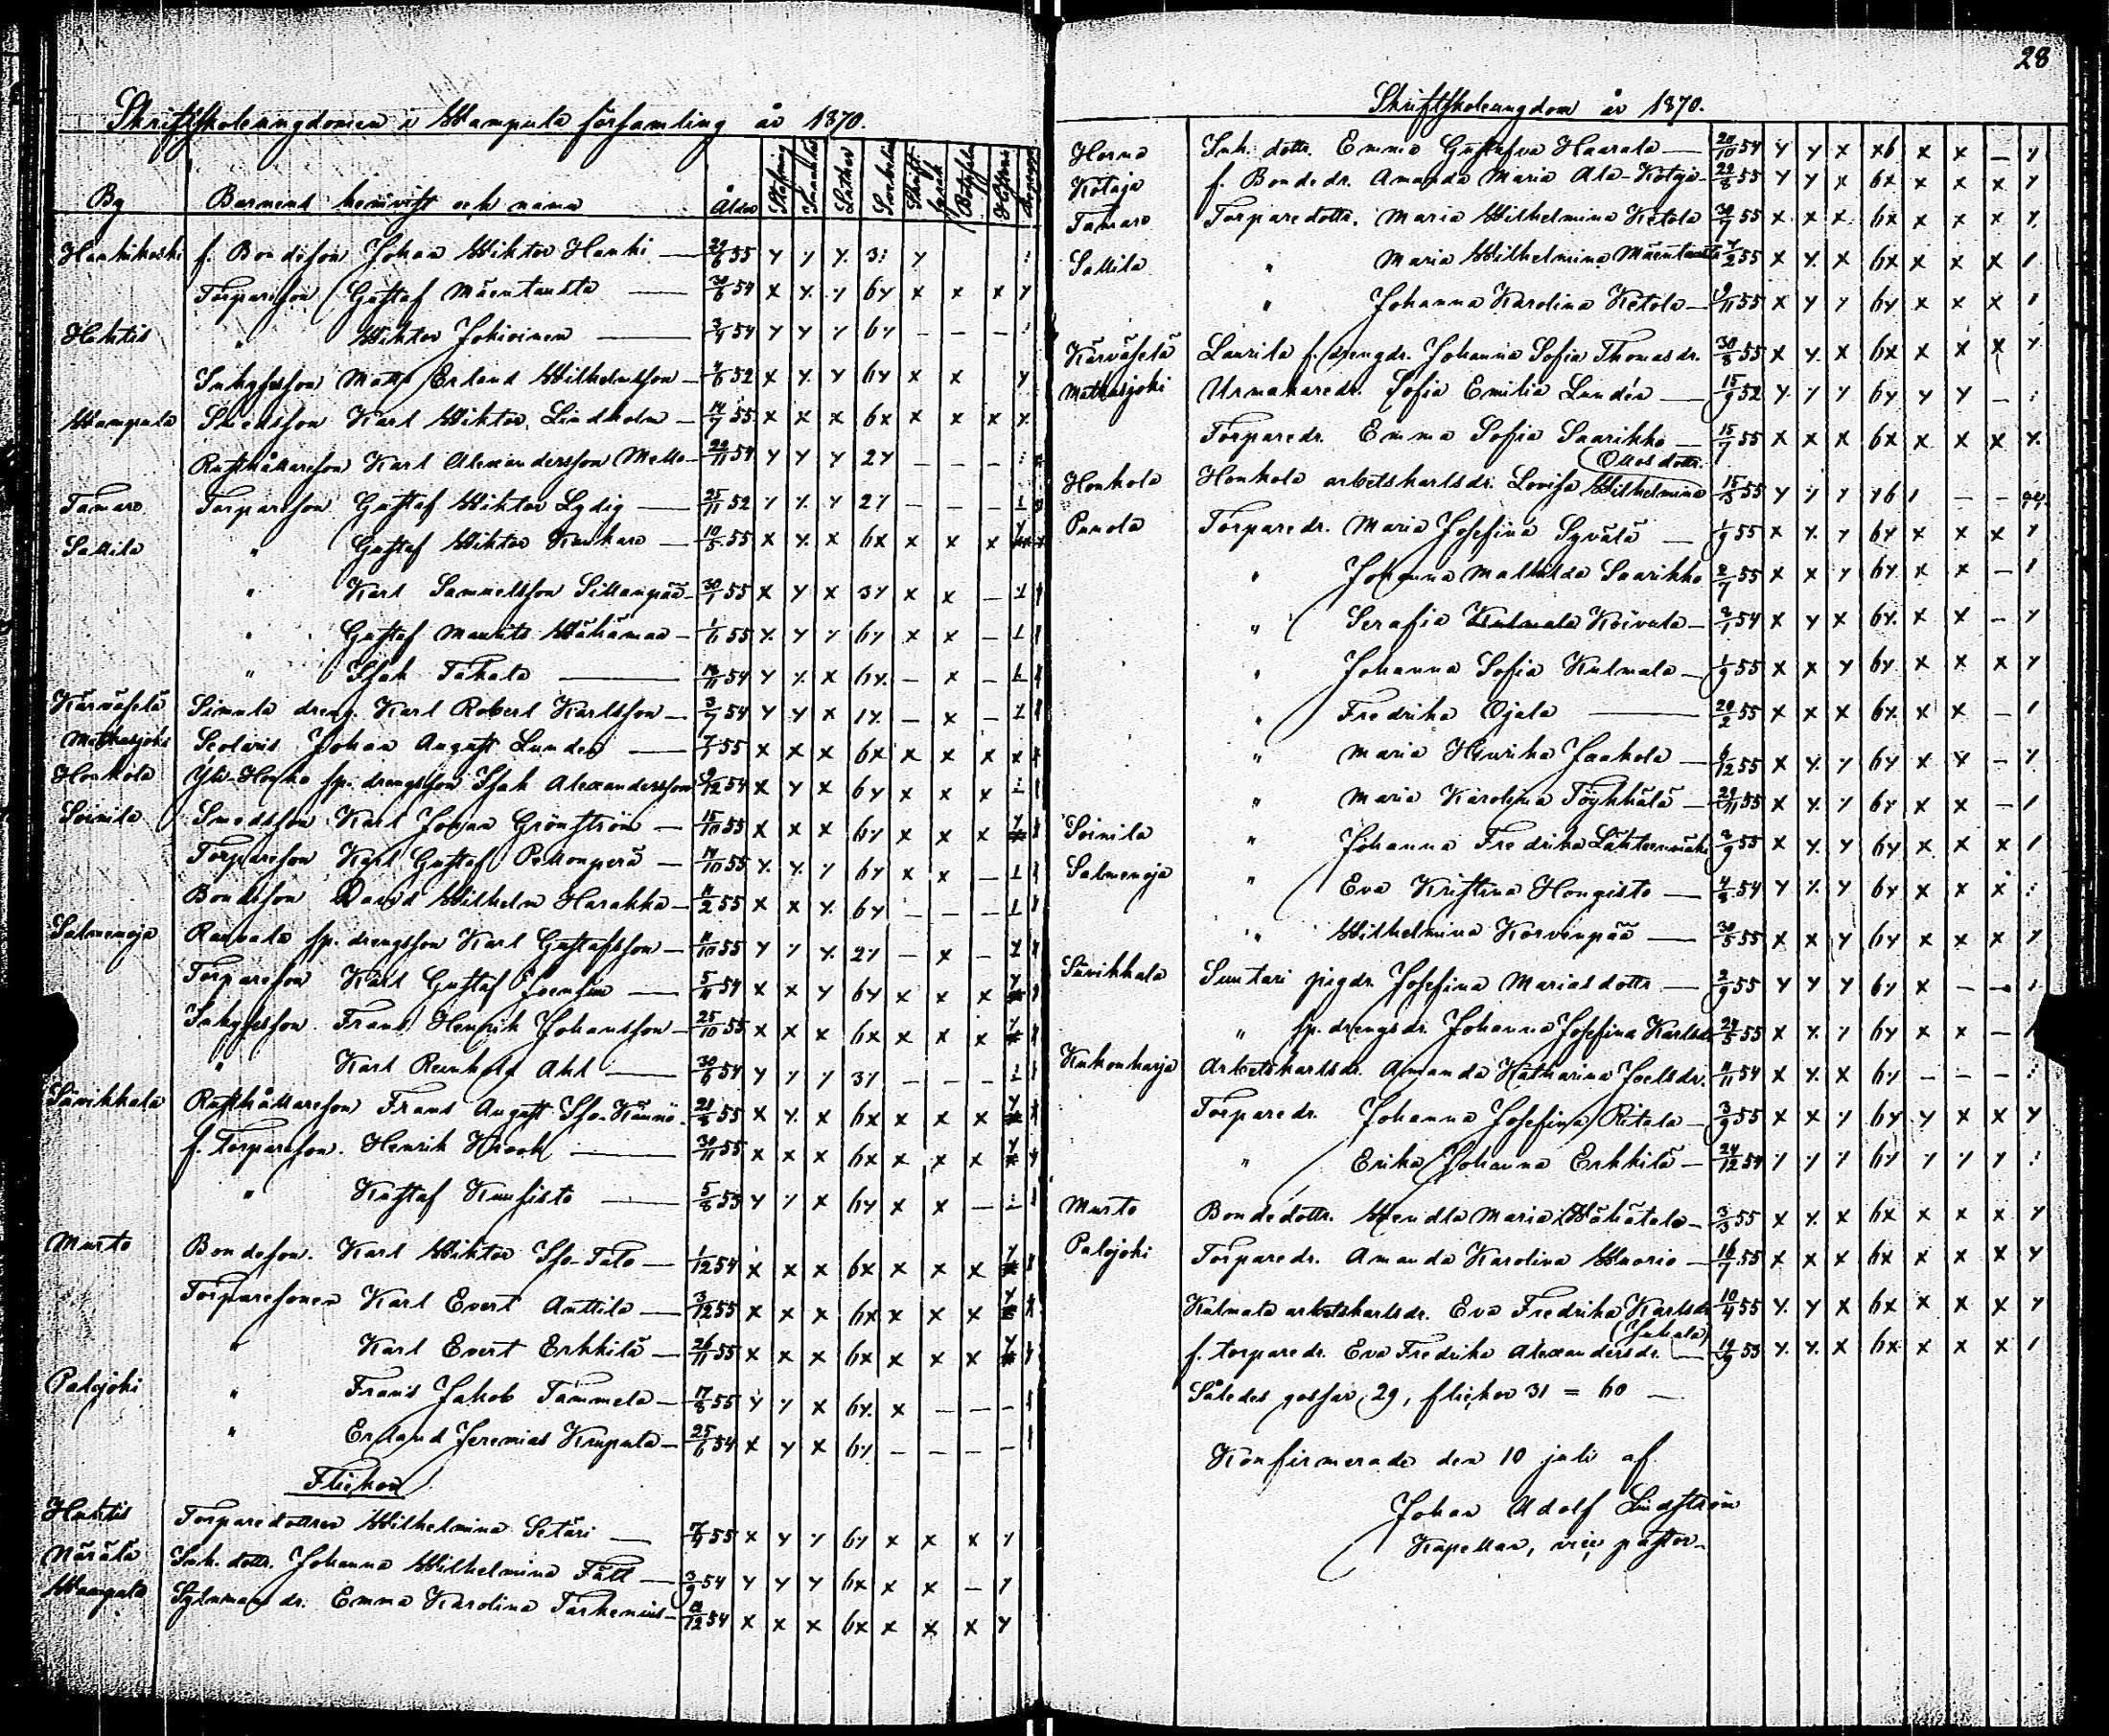 Skriftskoleungdomen i Wampula församling år 1870.
By Barnens hemvist och namn Ålder Stafning Innanläsn. Luther Svebelius Skrift Begrepp
Hankikoski f. Bondeson Johan Wiktor Hanki — 29/6 55 x x x 3x x
Torpareson Gustaf Mäentausta — 30/6 54 x x x 6x x x x x
Hahtis " Wiktor Johioinen — 3/9 54 x x x 6x — — —
Inhysesson Matts Erland Wilhelmsson — 4/6 52 x x x 6x x x x
Wampula Smedsson Karl Wiktor Lindholm — 14/7 55 x x x 6x x x x x
Rusthållareson Karl Alexandersson Mello — 22/11 54 x x x 2x — — —
Tamare Torpareson Gustaf Wiktor Lydig — 25/11 52 x x x 2x — — —
Sallila " Gustaf Wiktor Kankare — 10/5 55 x x x 6x x x x
" Karl Samuelsson Sillanpää — 30/1 55 x x x 3x x x —
" Gustaf Maurits Wähämaa — 1/6 55 x x x 6x x x —
" Isak Takala — 14/11 54 x x x 6x — x —
Kärväselä Simula dreng. Karl Robert Karlsson — 3/7 54 x x x 1x — x —
Matkusjoki Scolaris Johan August Lunden — 55 x x x 6x x x x x
Honkola Yli-Honko sp. drengsson Isak Alexandersson 9/12 54 x x x 6x x x x
Soinila Smedsson Karl Johan Grönström — 15/10 55 x x x 6x x x x
Torpareson Karl Gustaf Pellonperä — 14/10 55 x x x 6x x x —
Bondeson David Wilhelm Harakka — 11/2 55 x x x 6x — — —
Salmenoja Rauvala sp. drengsson Karl Gustafsson — 11/10 55 x x x 2x — x —
Torpareson Karl Gustaf Joensuu — 5/11 54 x x x 6x x x x
Inhysesson Frans Henrik Johansson — 25/10 55 x x x 6x x x x
" Karl Reinhold Ahl — 30/6 54 x x x 3x — — —
Sävikkala Rusthållareson Frans August Iso-Kännö — 21/8 55 x x x 6x x x x
f. Torpareson. Henrik Krook — 30/11 55 x x x 6x x x x
" Kustaf Kuusisto — 5/8 55 x x x 6x x x —
Murto Bondeson. Karl Wiktor Iso-Talo — 1/12 54 x x x 6x x x x
Torparesonen Karl Evert Anttila — 3/12 55 x x x 6x x x x
" Karl Evert Erkkilä — 26/11 55 x x x 6x x x x
Palojoki " Frans Jakob Tammela — 17/8 55 x x x 6x x — — —
" Erland Jeremias Krupula — 25/6 54 x x x 6x — — — —
Flickor
Hahtis Torparedottren Wilhelmina Setäri — 7/4 55 x x x 6x x x x x
Närälä Inh. dottr. Johanna Wilhelmina Fätt — 3/9 54 x x x 6x x x — x
Wampula dr. Emma Karolina Tarkenius — 12 54 x x x 6x x x x x
28
Skriftskoleungdom år 1870.
Horna Inh. dottr. Emma Gustafva Haarala — 20/10 54 x x x x6 x x — x
Kotaja f. Bondedr. Amanda Maria Ala-Kotaja — 22/8 55 x x x 6x x x x x
Tamare Torparedottr. Maria Wilhelmina Ketola 30/7 55 x x x 6x x x x x
Sallila " Maria Wilhelmina Mäentausta 4/2 55 x x x 6x x x x
" Johanna Karolina Ketola — 9/11 55 x x x 6x x x x
Kärväselä Laurila f. drengdr. Johanna Sofia Thomasdr. 30/8 55 x x x 6x x x x x
Matkusjoki Urmakaredr. Sofia Emilia Lundén — 15/9 52 x x x 6x x x —
Torparedr. Emma Sofia Saarikko — 15/7 55 x x x 6x x x x x
Ottos dottr.
Honkola Honkola arbetskarlsdr. Lovisa Wilhelmina 15/8 55 x x x x6 — —
Punola Torparedr. Maria Josefina Syvälä — 1/9 55 x x x 6x x x x
" Johanna Mathilda Saarikko 2/7 55 x x x 6x x x —
" Serafia Kulmala Koivula — 2/1 54 x x x 6x x x — x
" Johanna Sofia Kulmala — 1/9 55 x x x 6x x x x x
" Fredrika Ojala — 20/2 55 x x x 6x x x —
" Maria Henrika Jaakola — 6/12 55 x x x 6x x x — x
" Maria Karolina Töykkälä — 29/11 55 x x x 6x x x —
Soinila " Johanna Fredrika Lähteenmäki 2/9 55 x x x 6x x x x
Salmenoja " Eva Kristina Hongisto — 4/8 54 x x x 6x x x x
" Wilhelmina Korvenpää — 30/5 55 x x x 6x x x x x
Sävikkala Suntari pigdr. Josefina Mariasdottr — 2/9 55 x x x 6x x — —
" sp. drengsdr. Johanna Josefina Karlsdr 24/5 55 x x x 6x x x —
Kukonharja Arbetskarlsdr. Amanda Katharina Joelsdr. 11/11 54 x x x 6x — — —
Torparedr. Johanna Josefina Ritala — 3/9 55 x x x 6x x x x x
" Erika Johanna Erkkilä — 24/12 54 x x x 6x x x x
Murto Bondedottr. Wendla Maria Wähätalo — 3/3 55 x x x 6x x x x x
Palojoki Torparedr. Amanda Karolina Wuorio — 16/7 55 x x x 6x x x x x
Kulmala arbetskarlsdr. Eva Fredrika Karlsdr 10/4 55 x x x 6x x x x x
(Juhala)
f. torparedr. Eva Fredrika Alexandersdr. — 19/9 53 x x x 6x x x x
Således gossar 29, flickor 31 = 60 —
Konfirmerade den 10 juli af
Johan Adolf Lindström
Kapellan, vice pastor.